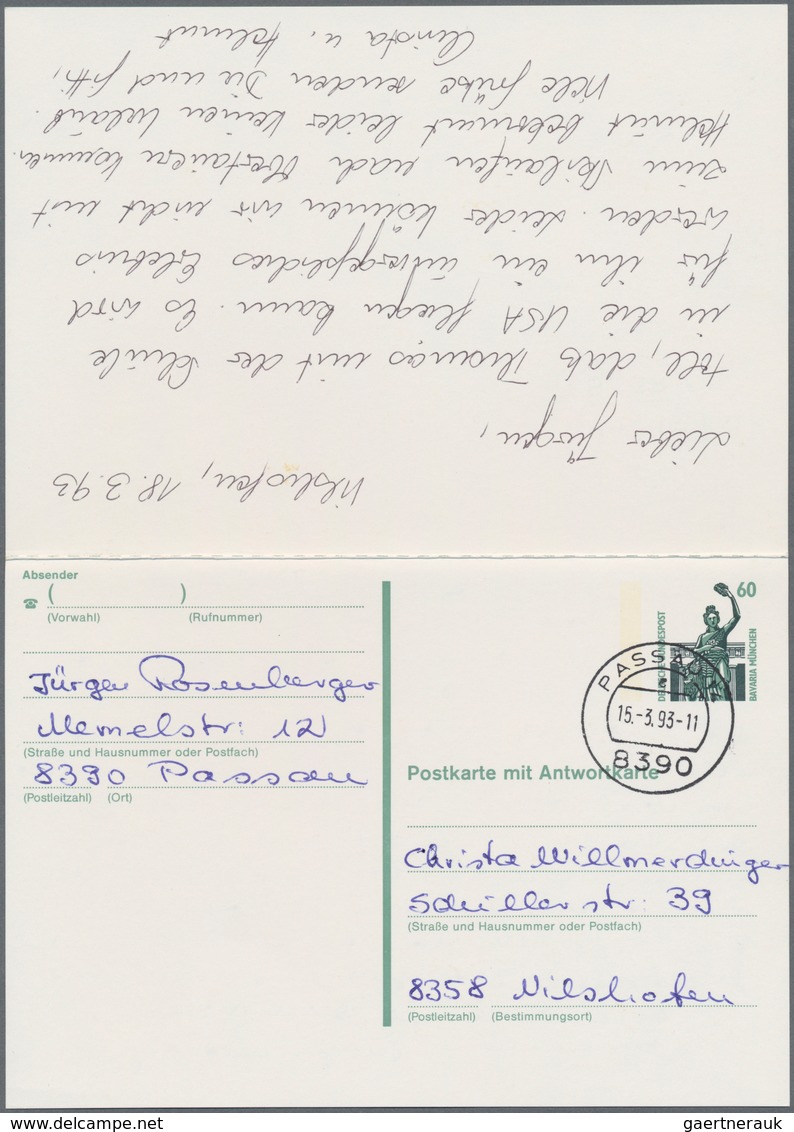 Vilshofen, 18.3.93
Lieber Jürgen,
toll, daß Thomas mit der Schule
in die USA fliegen kann. Es wird
für ihn ein unvergeßliches Erlebnis
werden. Leider können wir nicht mit
zum Skilaufen nach Obertauern kommen.
Helmut bekommt leider keinen Urlaub.
Viele Grüße senden Dir und
Christa u. Helmut
Absender
☎ ( )
(Vorwahl) (Rufnummer)
Jürgen Rosenberger
Memelstr: 12
(Straße und Hausnummer oder Postfach)
8390 Passau
(Postleitzahl) (Ort)
60
DEUTSCHE BUNDESPOST
BAVARIA MÜNCHEN
PASSAU
15.-3.93-11
8390
Postkarte mit Antwortkarte
Christa Willmerdinger
Schillerstr: 39
(Straße und Hausnummer oder Postfach)
8358 Vilshofen
(Postleitzahl) (Bestimmungsort)
gaertnerauk